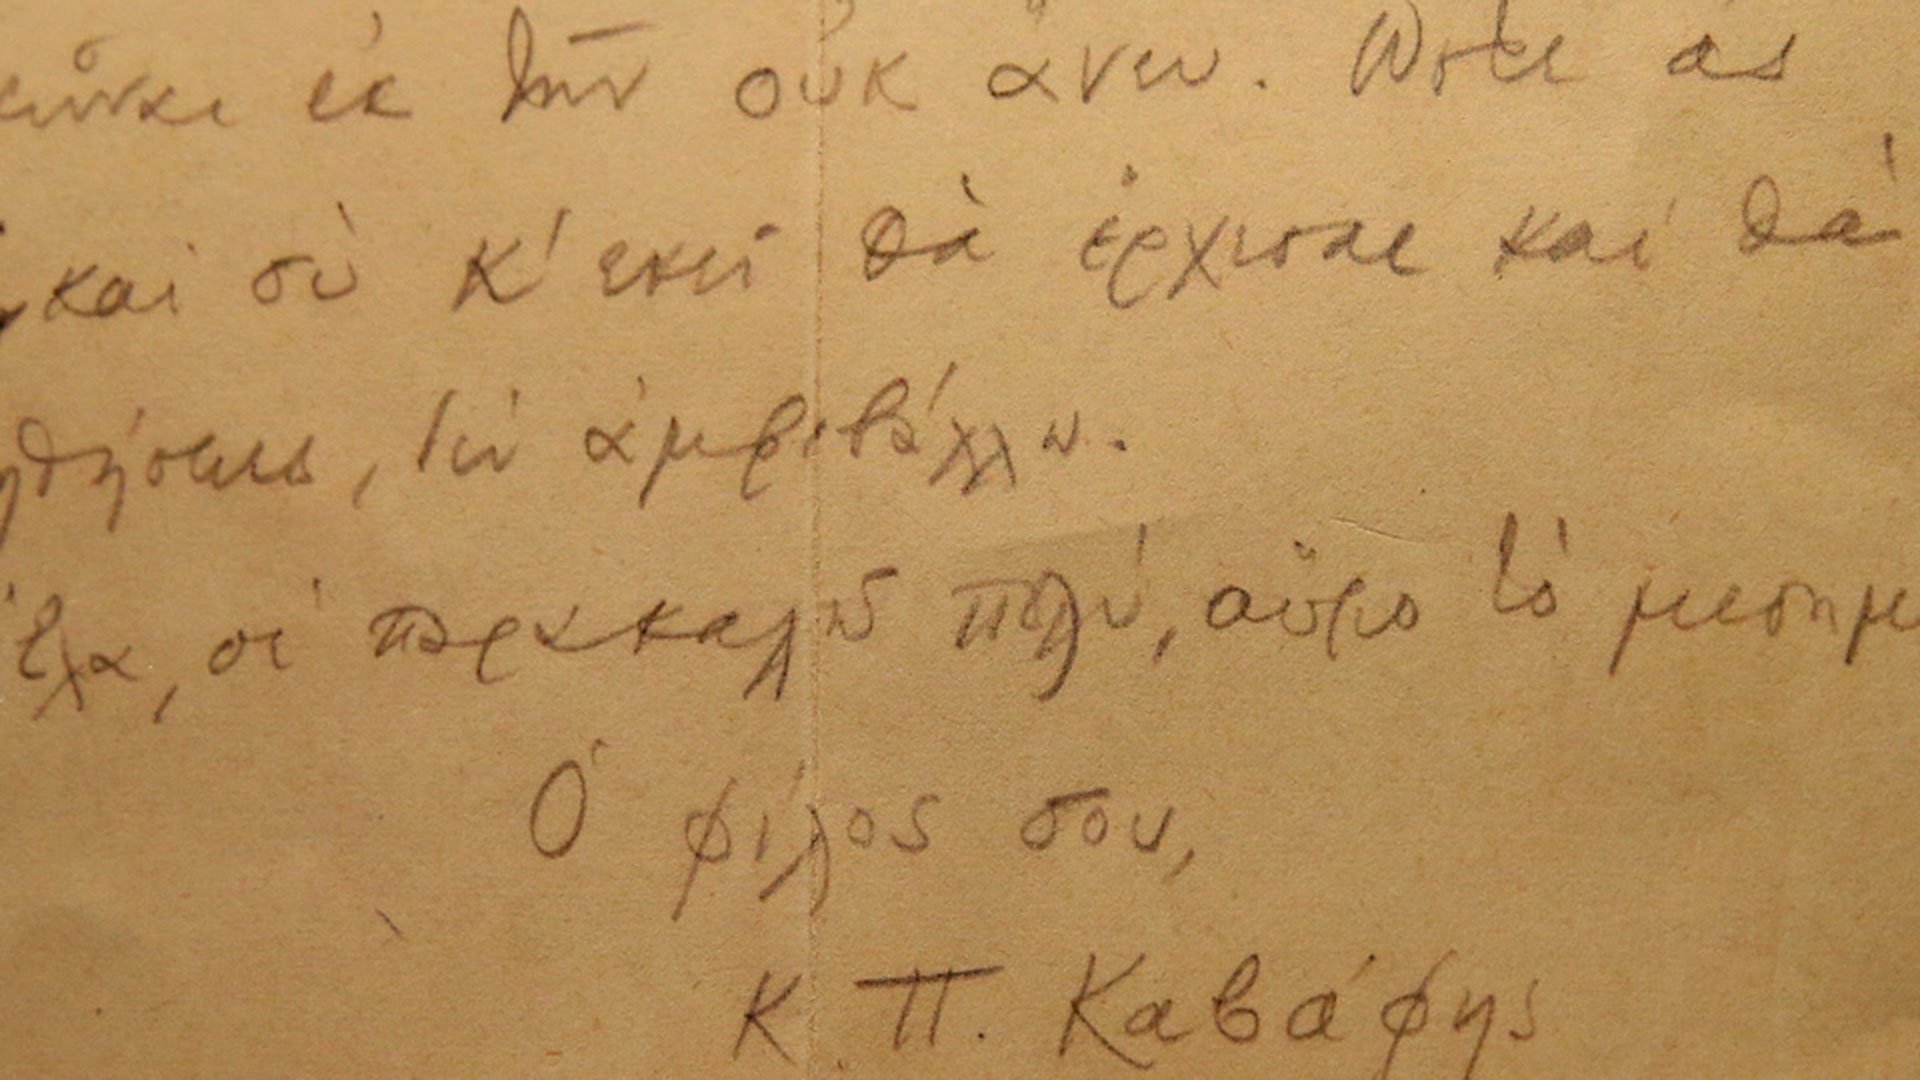 ἐκ τῶν οὐκ ἄνευ. Ὥστε ἂς
καὶ σὺ κ' ἐκεῖ θὰ ἔρχεσαι καὶ θὰ
δὲν ἀμφιβάλλω.
Ἔλα, σὲ παρακαλῶ πολύ, αὔριο τὸ μεσημέ
Ὁ φίλος σου,
Κ. Π. Καβάφης